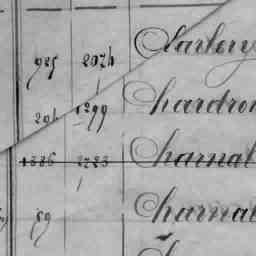 985 2074 Clarlery
296 1299 Chardron
1886 2723 Charnal
59 Charnal